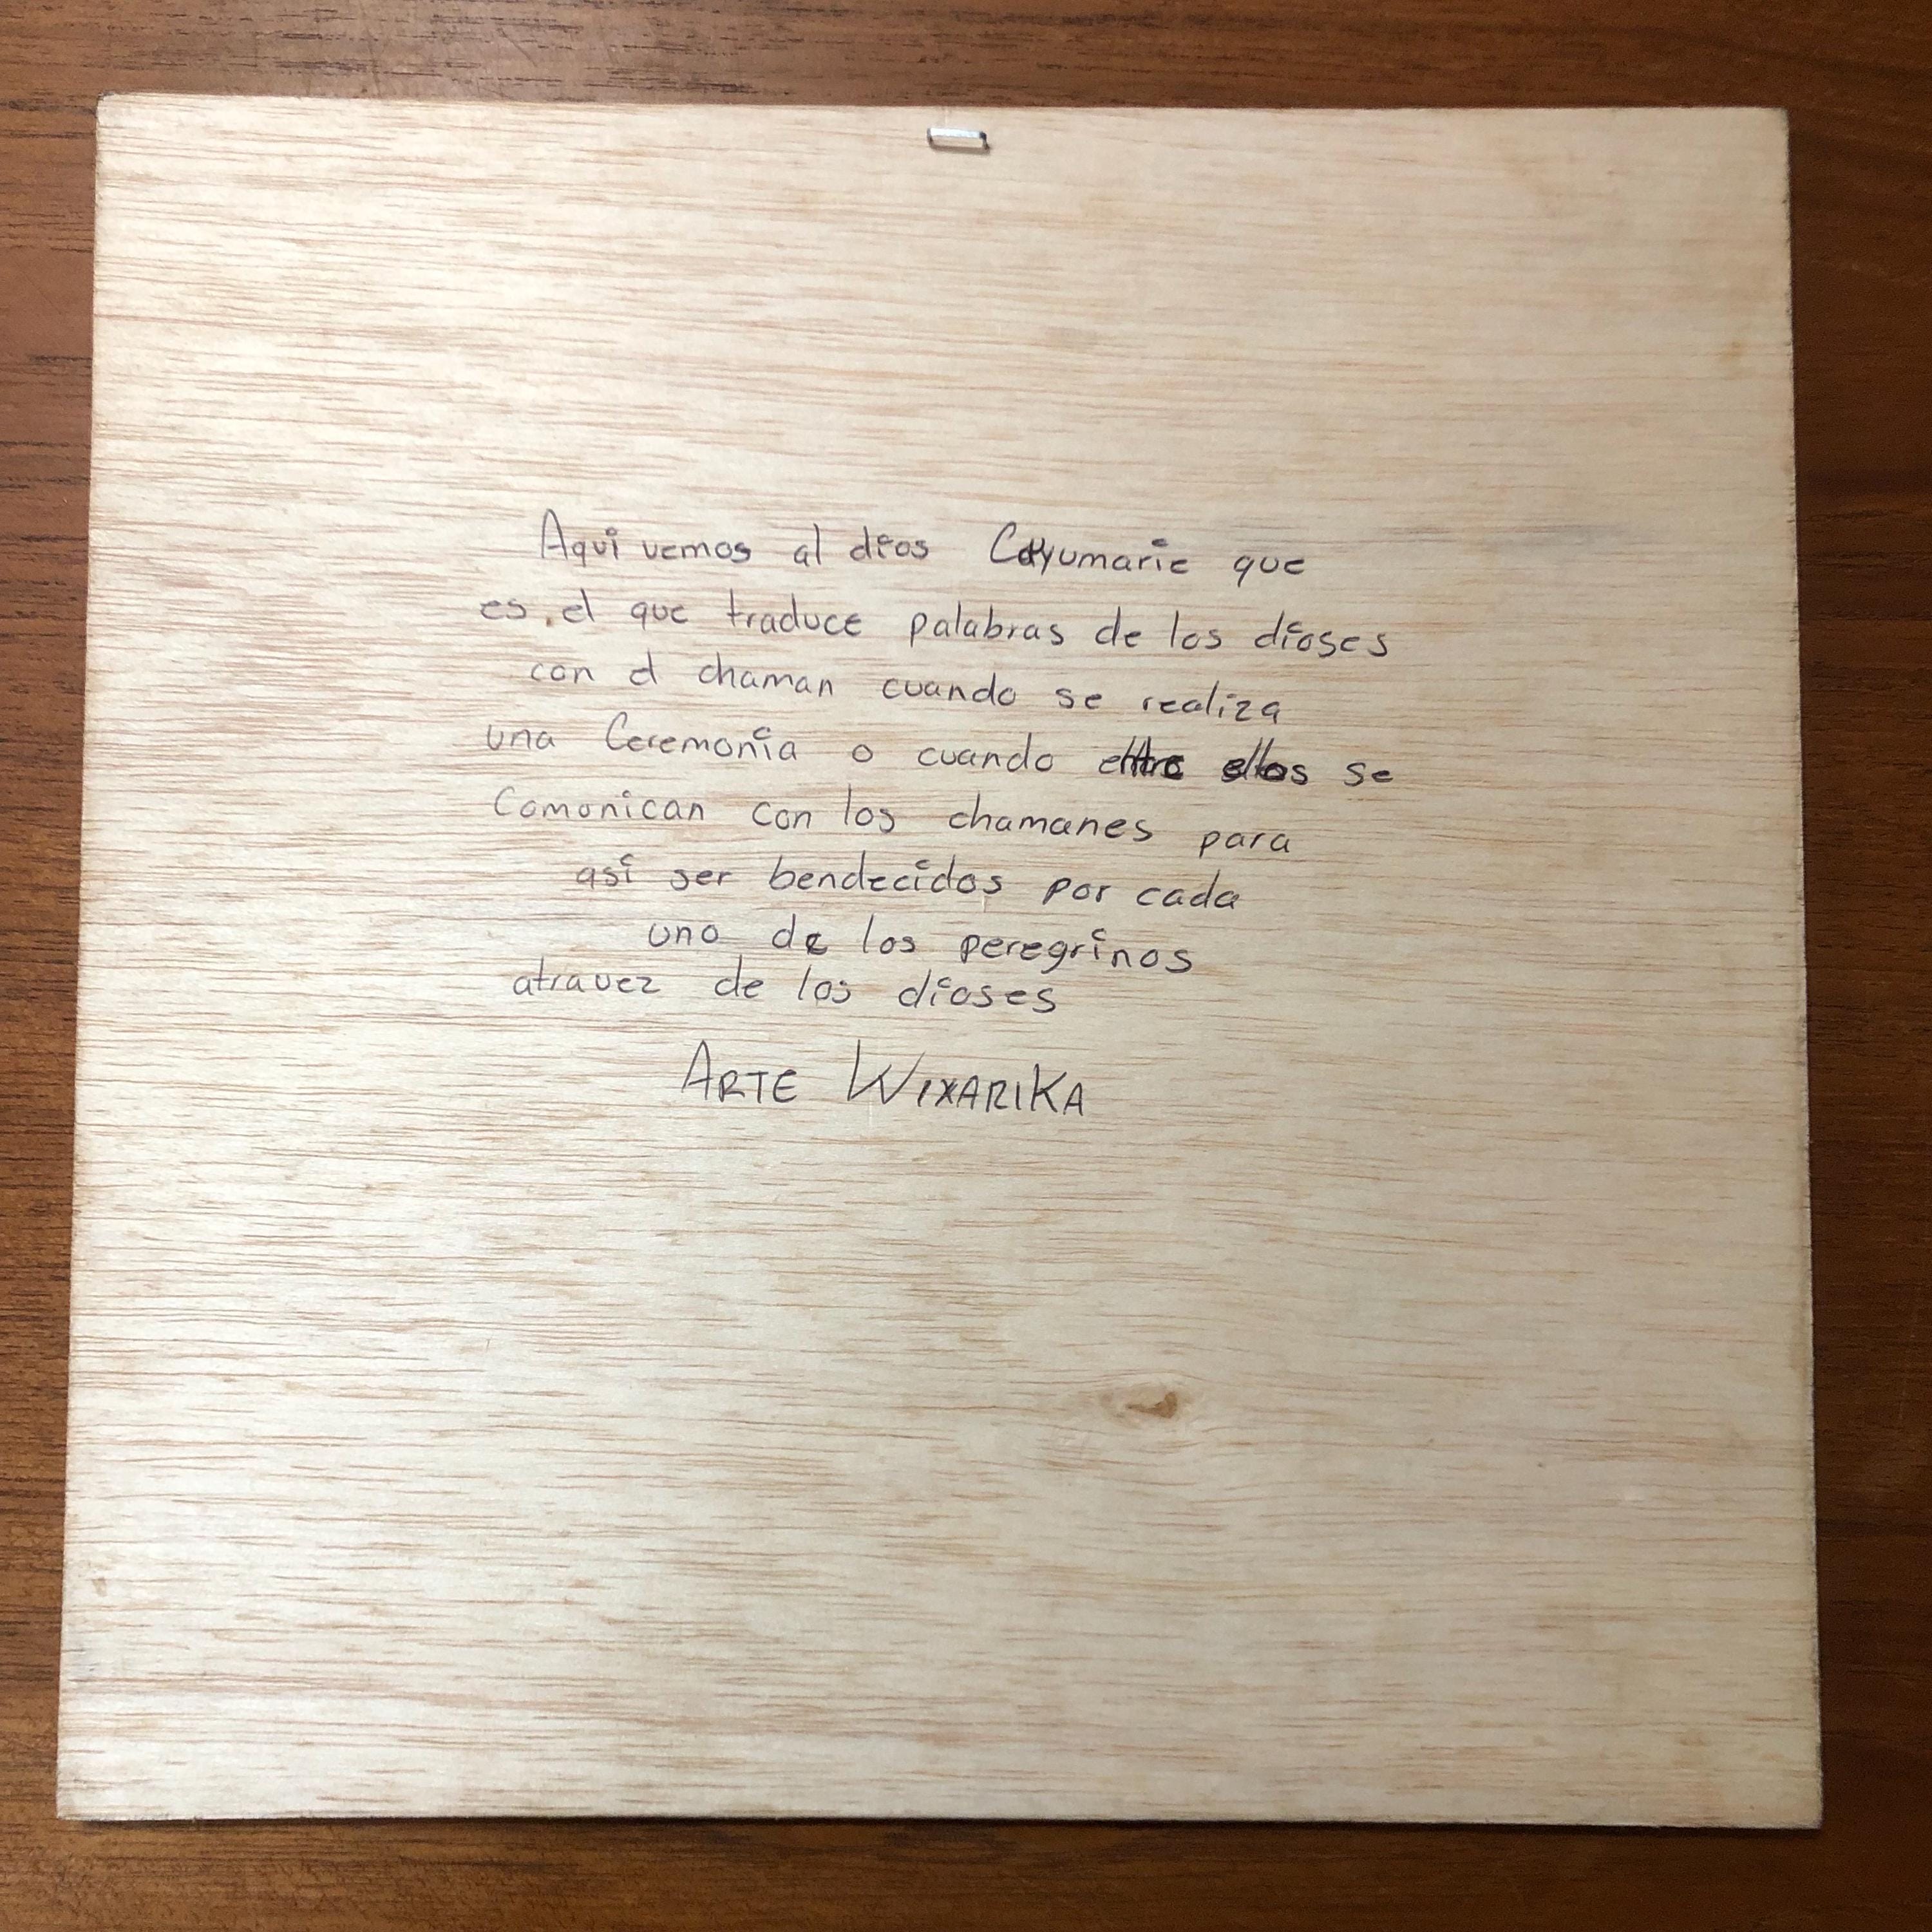 Aqui vemos al dios Cayumarie que
es el que traduce palabras de los dioses
con el chaman cuando se realiza
una Ceremonia o cuando entre ellos se
Comonican con los chamanes para
asi ser bendecidos por cada
uno de los peregrinos
atravez de los dioses
ARTE WIXARIKA